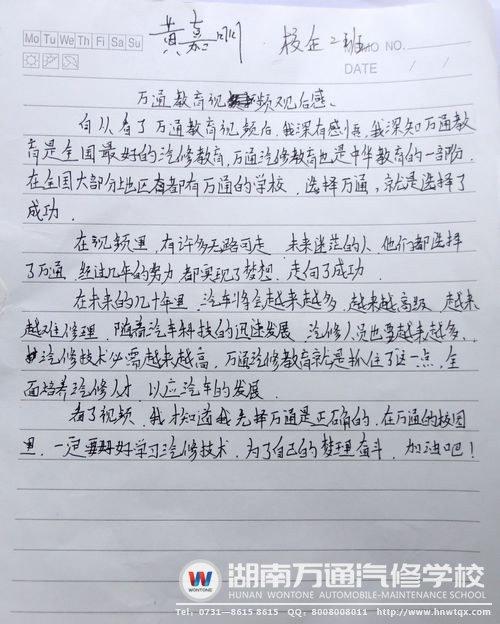 Mo Tu We Th Fr Sa Su
黄嘉
校企2班
MEMO NO.
DATE / /
万通教育视频观后感、
自从看了万通教育视频后,我深有感悟,我深知万通教
育是全国最好的汽修教育,万通汽修教育也是中华教育的一部份,
在全国大部分地区都有万通的学校,选择万通,就是选择了
成功.
在视频里,有许多无路可走,未来迷茫的人,他们都选择
了万通,经过几年的努力,都实现了梦想,走向了成功.
在未来的几十年里,汽车将会越来越多,越来越高级,越来
越难修理,随着汽车科技的迅速发展,汽修人员也要越来越多、
汽修技术必需越来越高,万通汽修教育就是抓住了这一点,全
面培养汽修人才,以应汽车的发展.
看了视频,我才知道我选择万通是正确的,在万通的校园
里,一定要好好学习汽修技术,为了自己的梦想奋斗,加油吧!
WONTONE
湖南万通汽修学校
HUNAN WONTONE AUTOMOTIVE-MAINTENANCE SCHOOL
Tel: 0731—8615 8615 QQ: 8008008011 http://www.hnwtqx.com